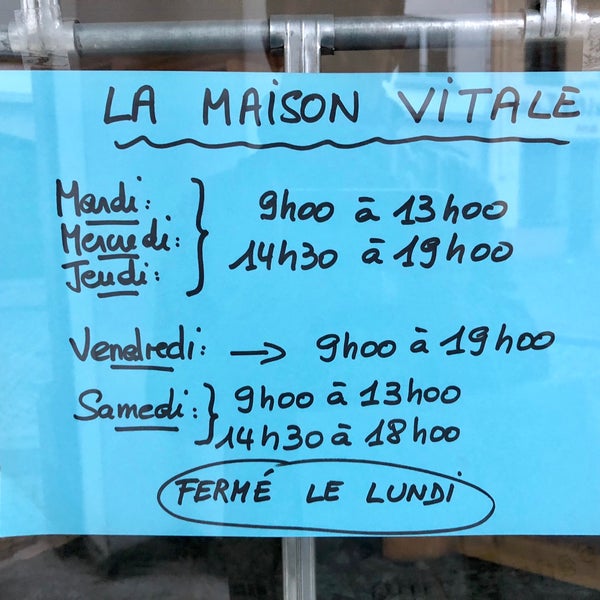 LA MAISON VITALE
Mardi: } 9h00 à 13h00
Mercredi: 14h30 à 19h00
Jeudi:
Vendredi: → 9h00 à 19h00
Samedi: } 9h00 à 13h00
14h30 à 18h00
FERMÉ LE LUNDI